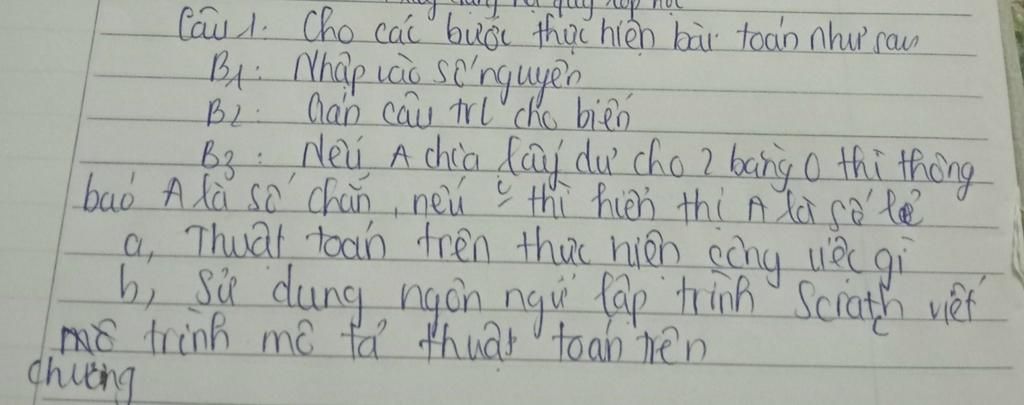 Câu 1: Cho các bước thực hiện bài toán như sau
B1: Nhập vào số nguyên
B2: Gán câu trl cho biến
B3: Nếu A chia lấy dư cho 2 bằng 0 thì thông
báo A là số chẵn, nếu thì hiển thị A là số lẻ
a, Thuật toán trên thực hiện công việc gì
b, Sử dụng ngôn ngữ lập trình Scratch viết
trình mô tả thuật toán trên
chương